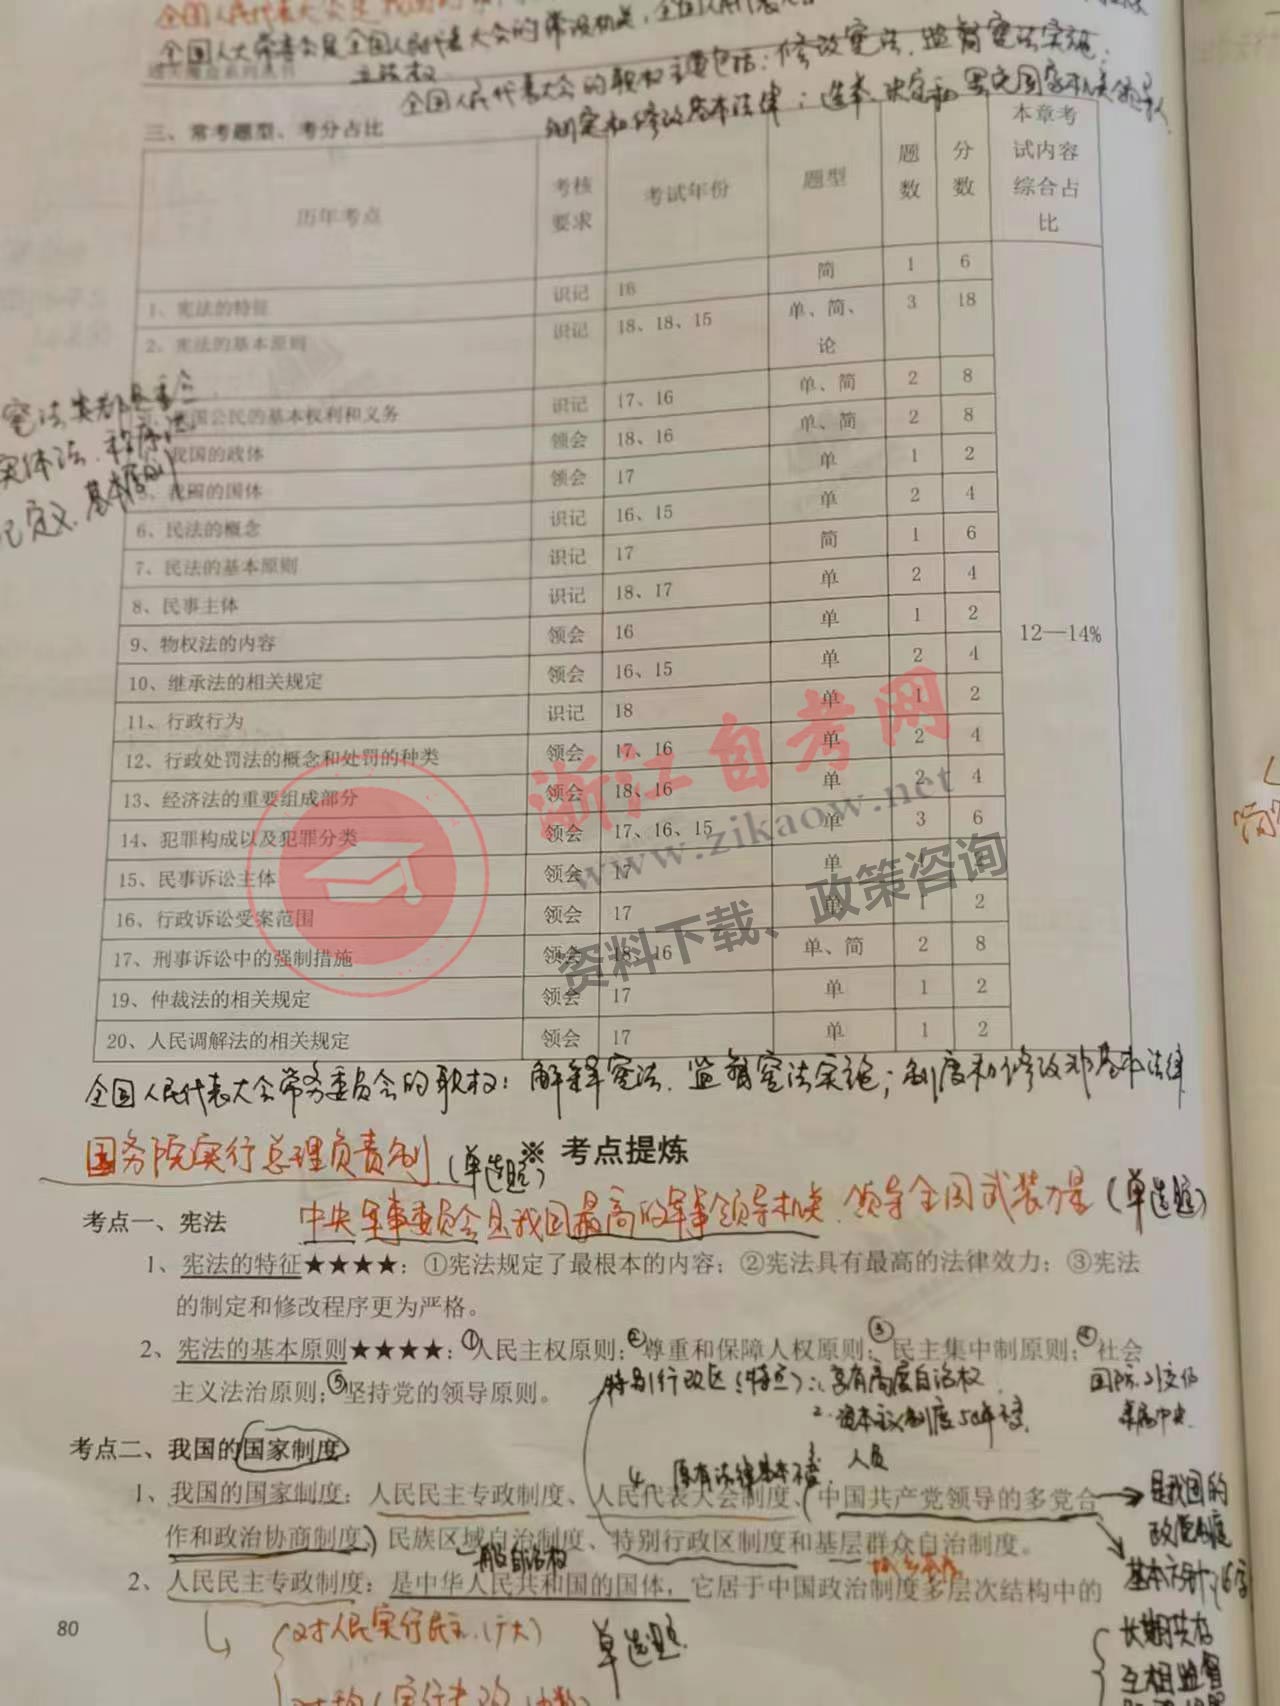 全国人大常委会是全国人民代表大会的常设机关,
全国人民代表大会的职权主要包括:修改宪法、监督宪法实施;
制定和修改基本法律;选举、决定和罢免国家机关领导人
三、常考题型、考分占比
历年考点 考核要求 考试年份 题型 题数 分数 本章考试内容综合占比
1、宪法的特征 识记 18 简 1 6
2、宪法的基本原则 识记 18、18、15 单、简、论 3 18
国公民的基本权利和义务 识记 17、16 单、简 2 8
我国的政体 领会 18、16 单、简 2 8
我国的国体 领会 17 单 1 2
6、民法的概念 识记 16、15 单 2 4
7、民法的基本原则 识记 17 简 1 6
8、民事主体 识记 18、17 单 2 4
9、物权法的内容 领会 16 单 1 2
10、继承法的相关规定 领会 16、15 单 2 4
11、行政行为 识记 18 单 1 2
12、行政处罚法的概念和处罚的种类 领会 17、16 单 2 4
13、经济法的重要组成部分 领会 18、16 单 2 4
14、犯罪构成以及犯罪分类 领会 17、16、15 单 3 6
15、民事诉讼主体 领会 17 单
16、行政诉讼受案范围 领会 17 单 1 2
17、刑事诉讼中的强制措施 领会 18、16 单、简 2 8
19、仲裁法的相关规定 领会 17 单 1 2
20、人民调解法的相关规定 领会 17 单 1 2
12—14%
实体法、程序法
记定义、基本原则
浙江自考网
www.zikaow.net
资料下载、政策咨询
全国人民代表大会常务委员会的职权:解释宪法、监督宪法实施;制度和修改非基本法律
国务院实行总理负责制(单选题)
※ 考点提炼
考点一、宪法
中央军事委员会是我国最高的军事领导机关,领导全国武装力量(单选题)
1、宪法的特征★★★★:①宪法规定了最根本的内容;②宪法具有最高的法律效力;③宪法
的制定和修改程序更为严格。
2、宪法的基本原则★★★★:①人民主权原则;②尊重和保障人权原则;③民主集中制原则;④社会
主义法治原则;⑤坚持党的领导原则。
特别行政区(特点):1、享有高度自治权
国防、外交仍
2、资本主义制度50年不变
属中央
考点二、我国的国家制度
4、原有法律基本不变
人员
1、我国的国家制度:人民民主专政制度、人民代表大会制度、(中国共产党领导的多党合
作和政治协商制度)民族区域自治制度、特别行政区制度和基层群众自治制度。
是我国的
政党制度
2、人民民主专政制度:是中华人民共和国的国体,它居于中国政治制度多层次结构中的
对人民实行民主(广大)
单选题
长期共存
互相监督
80